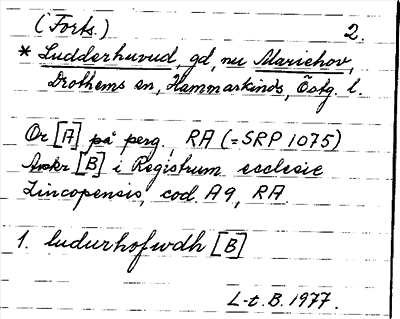 (Forts.) 2.
* Ludderhuvud, gd, nu Mariehov,
Drothems sn, Hammarkinds, Östg. l.
Or [A] på perg., RA (=SRP 1075)
Avskr [B] i Registrum ecclesie
Lincopensis, cod. A9, RA
1. ludurhofwdh [B]
L-t. B. 1977.